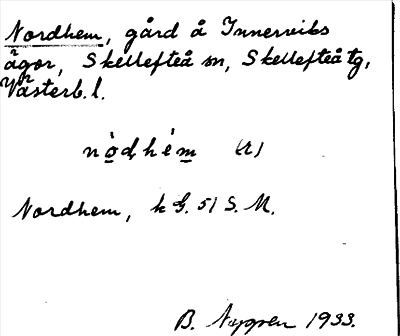 Nordhem, gård å Innerviks
ägor, Skellefteå sn, Skellefteå tg,
Västerb. l.
nòdhém (r)
Nordhem, k G. 51 S. M.
B. Nygren 1933.